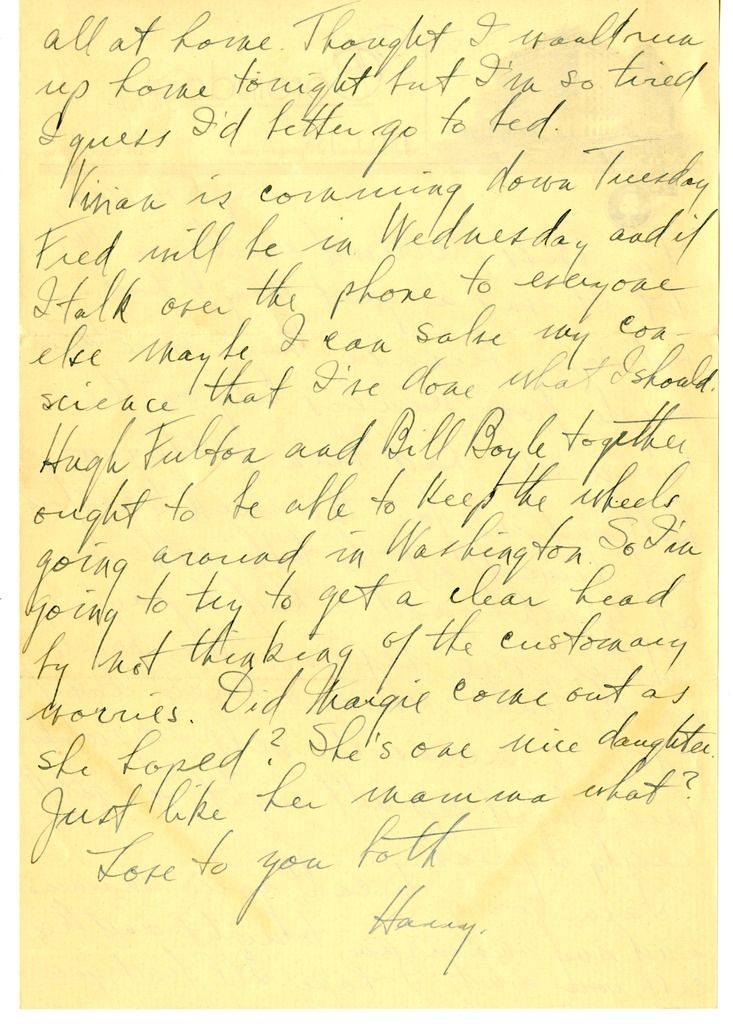 all at home. Thought I would run
up home tonight but I'm so tired
I guess I'd better go to bed.
Vivian is comming down Tuesday
Fred will be in Wednesday and if
I talk over the phone to everyone
else maybe I can salve my con-
science that I've done what I should.
Hugh Fulton and Bill Boyle together
ought to be able to keep the wheels
going around in Washington. So I'm
going to try to get a clear head
by not thinking of the customary
worries. Did Margie come out as
she hoped? She's one nice daughter.
Just like her mamma what?
Love to you both
Harry.